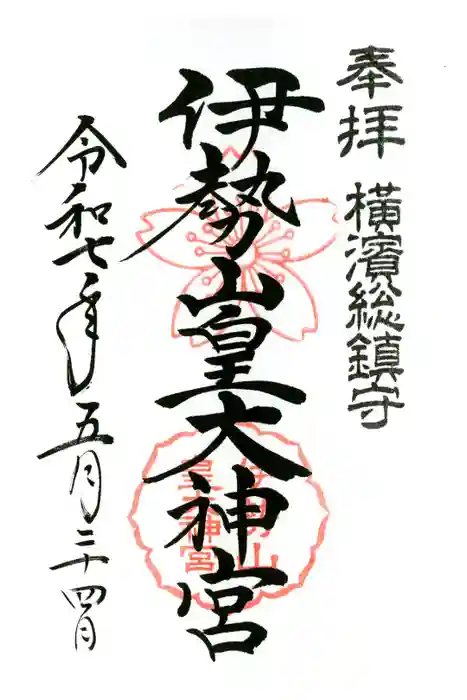 奉拝 横濱総鎮守
伊勢山皇大神宮
令和七年五月二十四日
伊勢山
皇大神宮